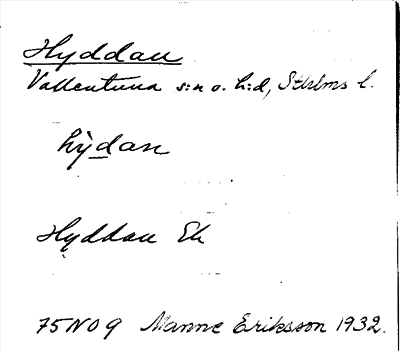 Hyddan
Vallentuna s:n o. h:d, Sthlms l.
hỳdan
Hyddan Ek
75NO9 Manne Eriksson 1932.